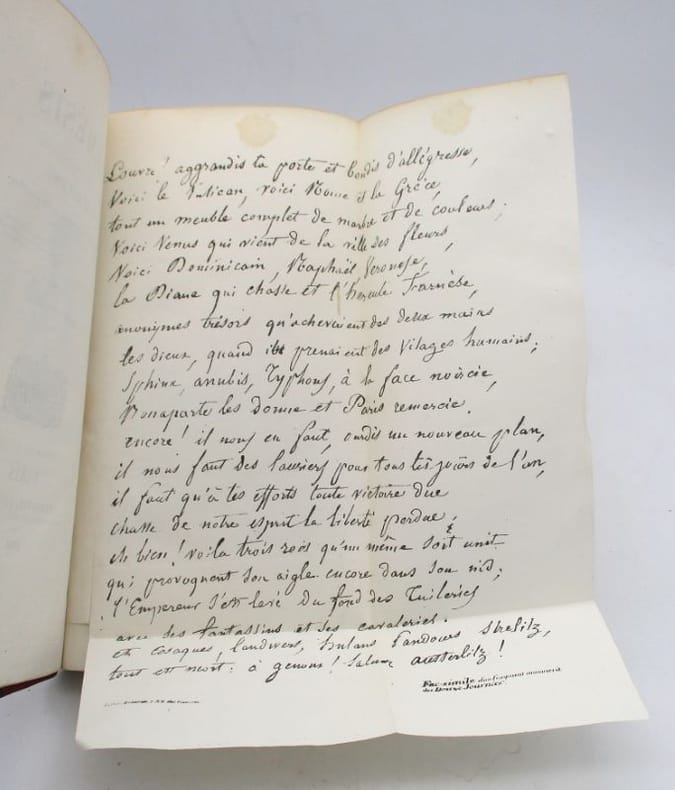 Louvre! aggrandis ta porte et bondis d'allégresse,
Voici le Vatican, voici Rome et la Grèce,
tout un meuble complet de marbre et de couleurs;
Voici Venus qui vient de la ville des fleurs,
Voici Dominicain, Raphaël, Veronese,
la Diane qui chasse et l'hercule Farnèse,
anonymes trésors qu'achevaient des deux mains
les dieux, quand ils prenaient des visages humains;
Sphinx, anubis, Typhons, à la face noircie,
Bonaparte les donne et Paris remercie.
encore! il nous en faut, ourdis un nouveau plan,
il nous faut des lauriers pour tous les jours de l'an,
il faut qu'à tes efforts toute victoire due
chasse de notre esprit la liberté perdue,
eh bien! voila trois rois qu'un même sort unit
qui provoquent son aigle encore dans son nid;
l'Empereur s'est levé du fond des Tuileries
avec ses fantassins et ses cavaleries.
et cosaques, landwers, hulans Pandours Strelitz,
tout est mort: à genoux! Salut austerlitz!
Fac-simile
des Douze Journées.